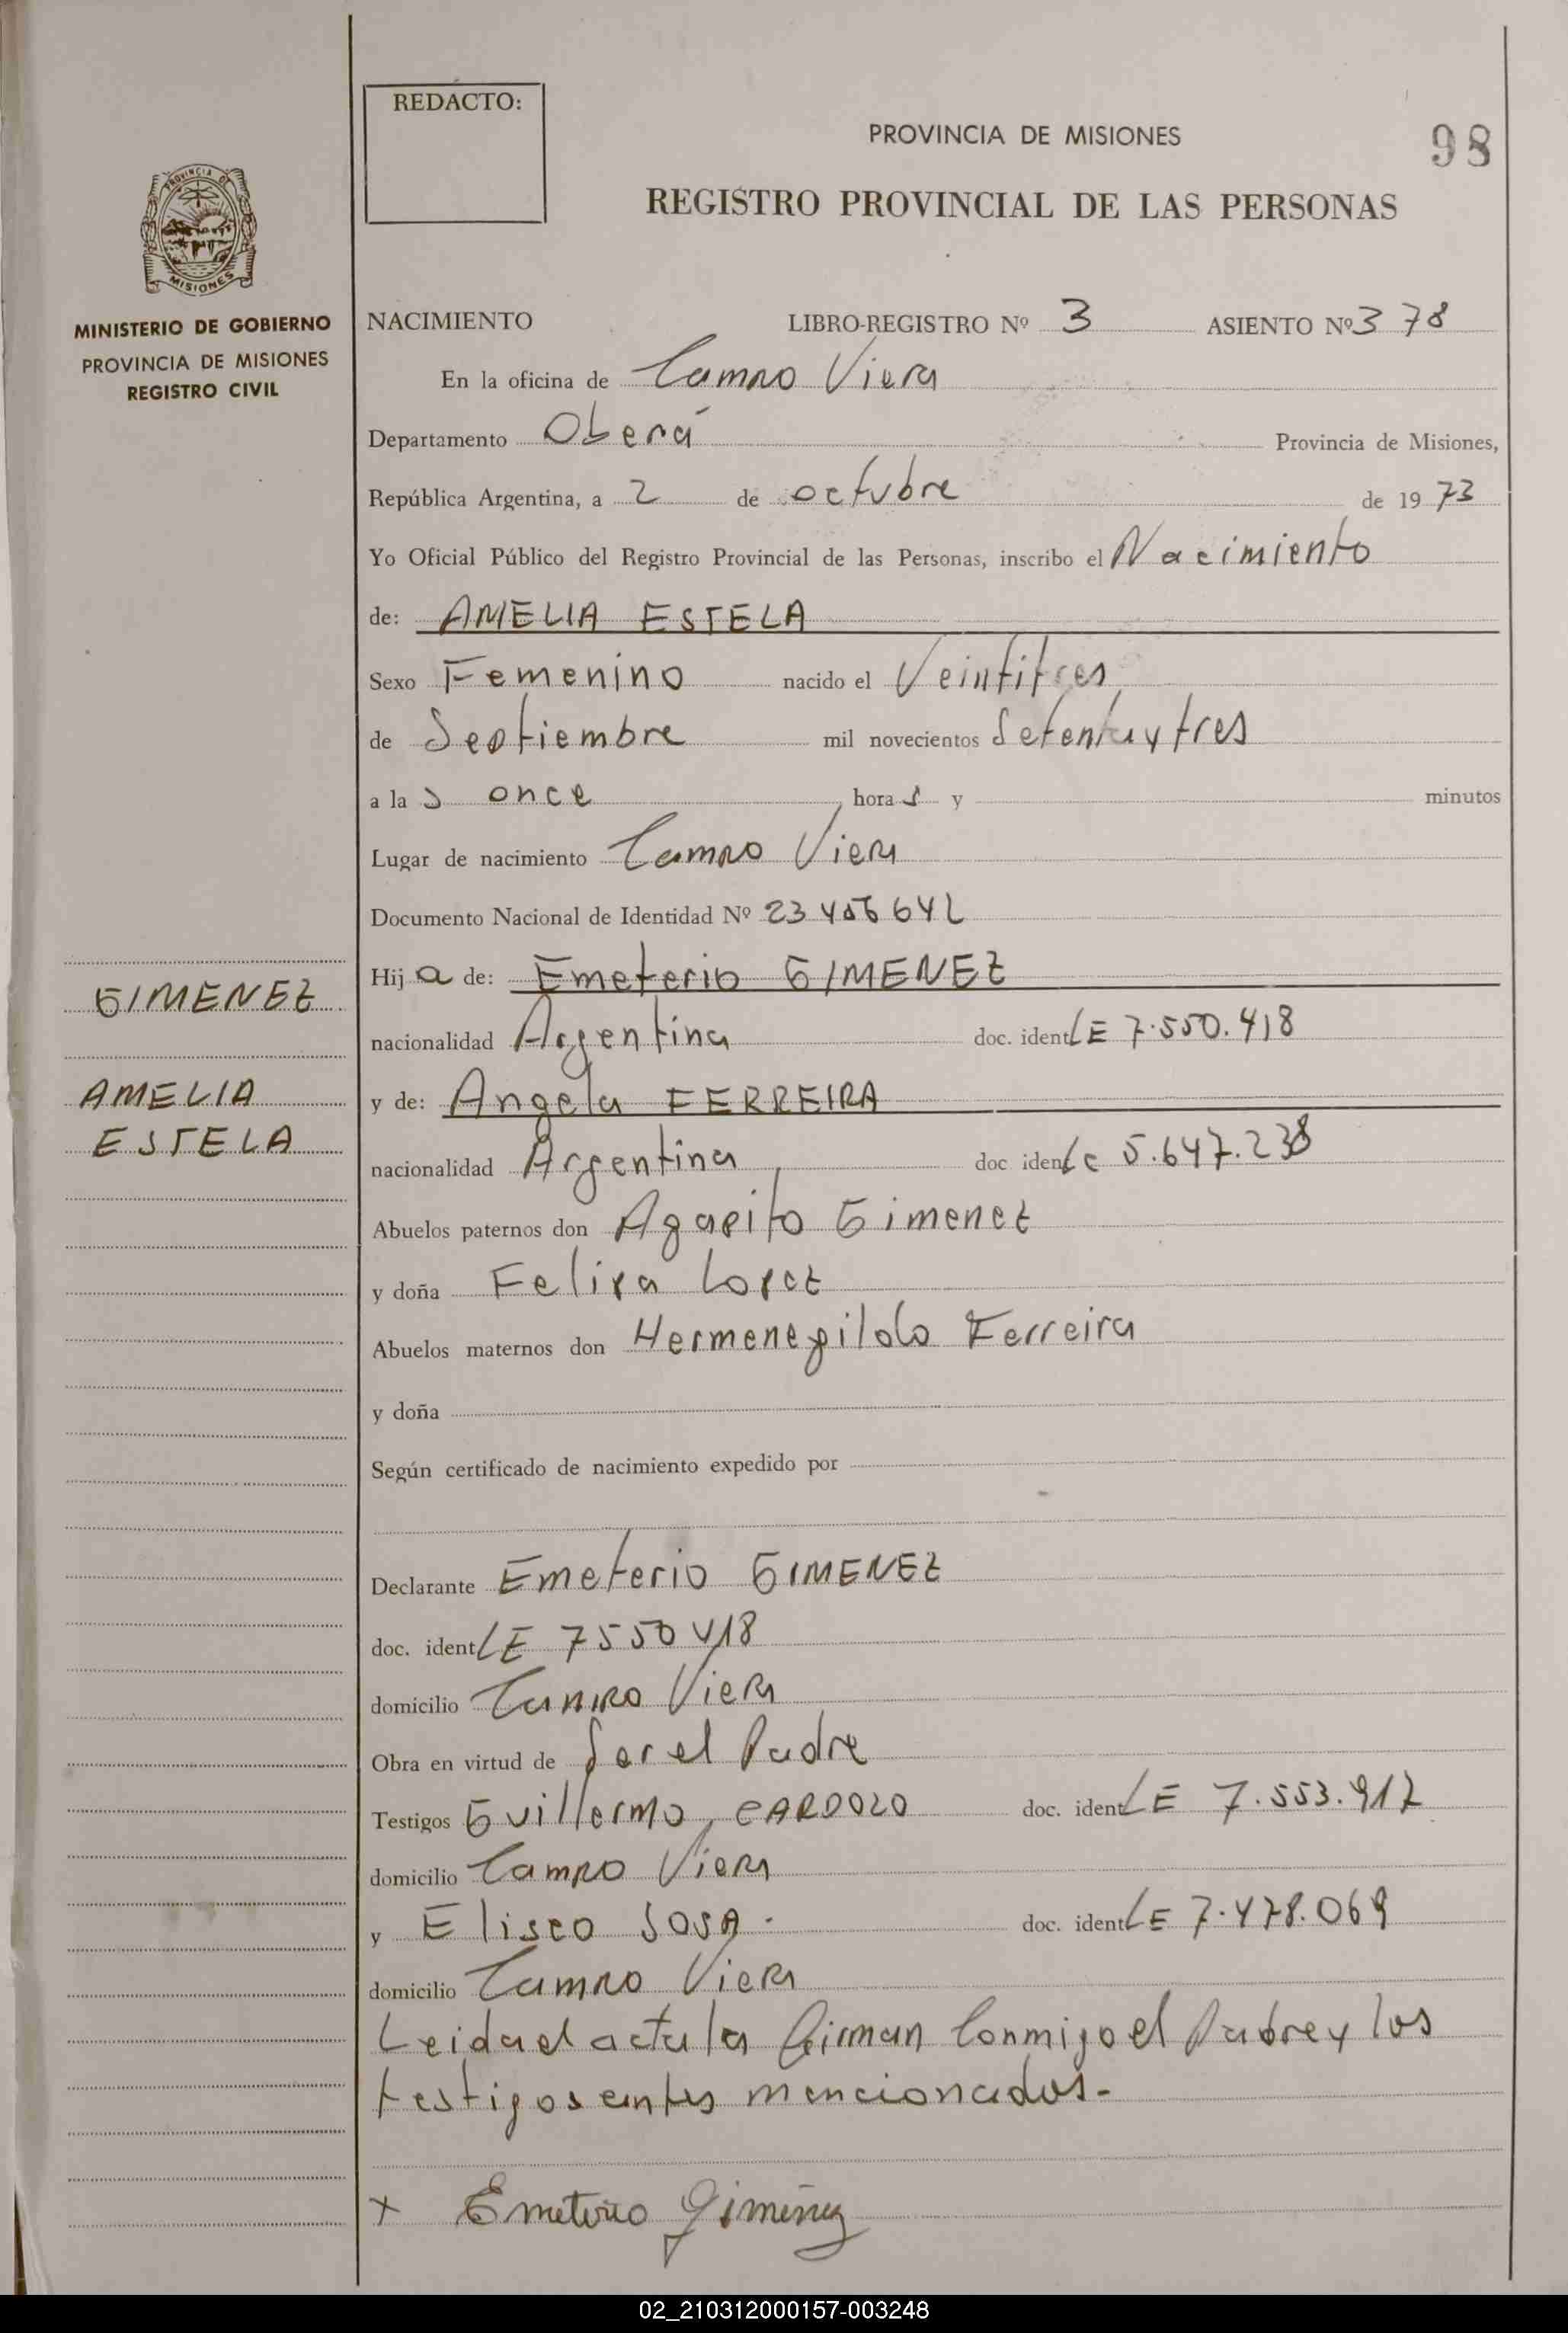 REDACTO:
PROVINCIA DE MISIONES
98
REGISTRO PROVINCIAL DE LAS PERSONAS
PROVINCIA DE
MISIONES
MINISTERIO DE GOBIERNO
PROVINCIA DE MISIONES
REGISTRO CIVIL
NACIMIENTO LIBRO-REGISTRO Nº 3 ASIENTO Nº 378
En la oficina de Campo Viera
Departamento Oberá Provincia de Misiones,
República Argentina, a 2 de octubre de 1973
Yo Oficial Público del Registro Provincial de las Personas, inscribo el Nacimiento
de: AMELIA ESTELA
Sexo Femenino nacido el Veintitres
de Septiembre mil novecientos Setenta y tres
a la s once hora s y minutos
Lugar de nacimiento Campo Viera
Documento Nacional de Identidad Nº 23 456 642
Hija de: Emeterio GIMENEZ
nacionalidad Argentina doc. ident LE 7.550.418
y de: Angela FERREIRA
nacionalidad Argentina doc iden Lc 5.647.238
Abuelos paternos don Agapito Gimenez
y doña Felipa Lopez
Abuelos maternos don Hermenegildo Ferreira
y doña
Según certificado de nacimiento expedido por
Declarante Emeterio GIMENEZ
doc. ident LE 7550418
domicilio Campo Viera
Obra en virtud de Ser el Padre
Testigos Guillermo CARDOZO doc. ident LE 7.553.912
domicilio Campo Viera
y Eliseo SOSA. doc. ident LE 7.478.069
domicilio Campo Viera
Leida el acta la firman Conmigo el Padre y los
testigos antes mencionados-
x Emeterio Giménez
GIMENEZ
AMELIA
ESTELA
02_210312000157-003248